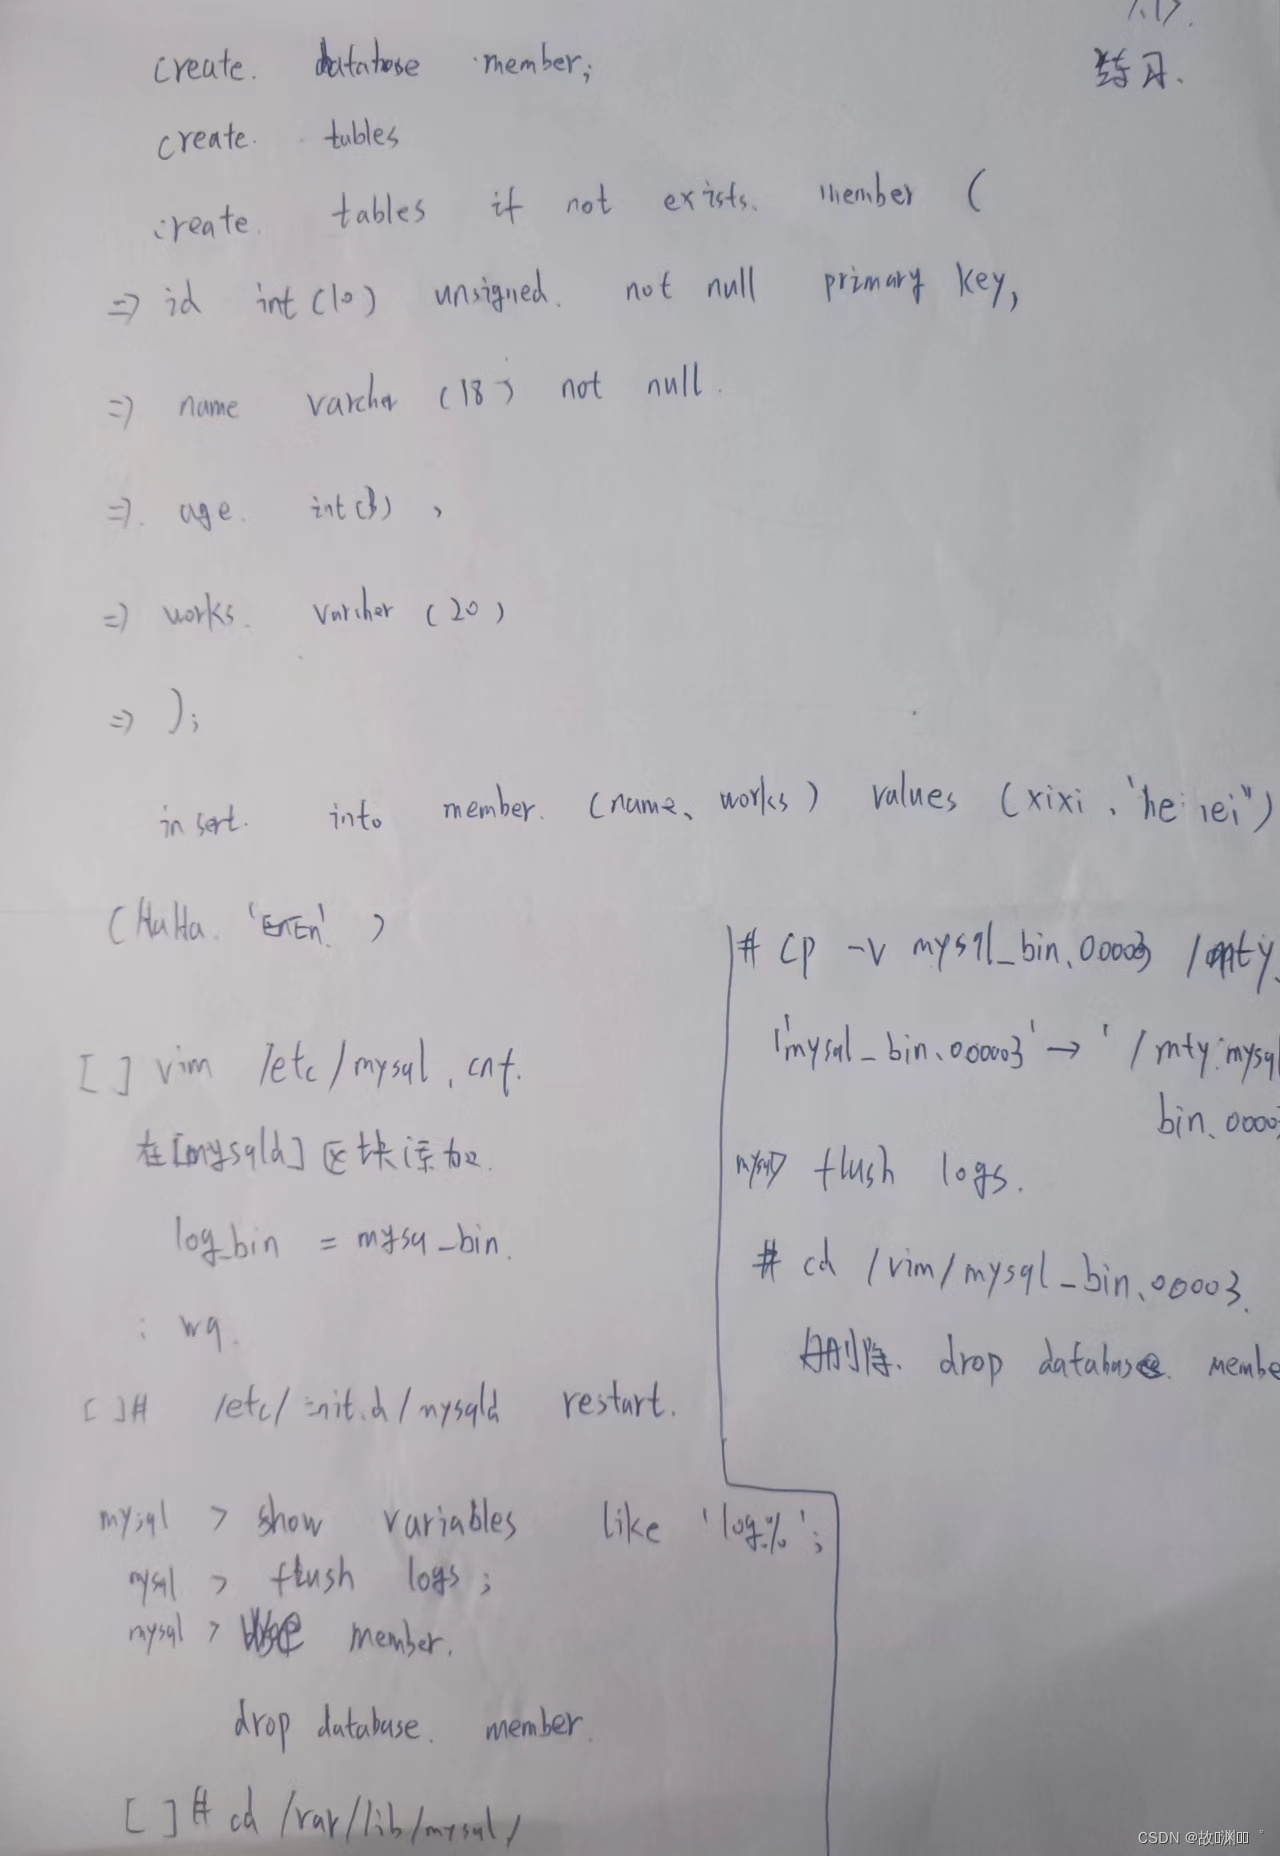 练习.
create. database member;
create. tables
create. tables if not exists. member (
=> id int(10) unsigned. not null primary key,
=> name varcher (18) not null.
=>. age. int(3) ,
=> works. varcher (20)
=> );
insert. into member. (name、works) values (xixi 、'he
(HaHa. 'EnEn' )
[ ] vim /etc/mysql .cnf.
在[mysqld]区块添加.
log_bin = mysq_bin.
: wq.
[ ]# /etc/init.d/mysqld restart.
mysql > show variables like 'log%';
mysql > flush logs ;
mysql > use member.
drop database. member.
[ ]# cd /var/lib/mysql/
# cp -v mysql_bin.00003
'mysql_bin.000003' → ' /mty:mysql
bin.0000
mysql> flush logs.
# cd /vim/mysql_bin.00003.
删除. drop database. membe
CSDN @故 渊